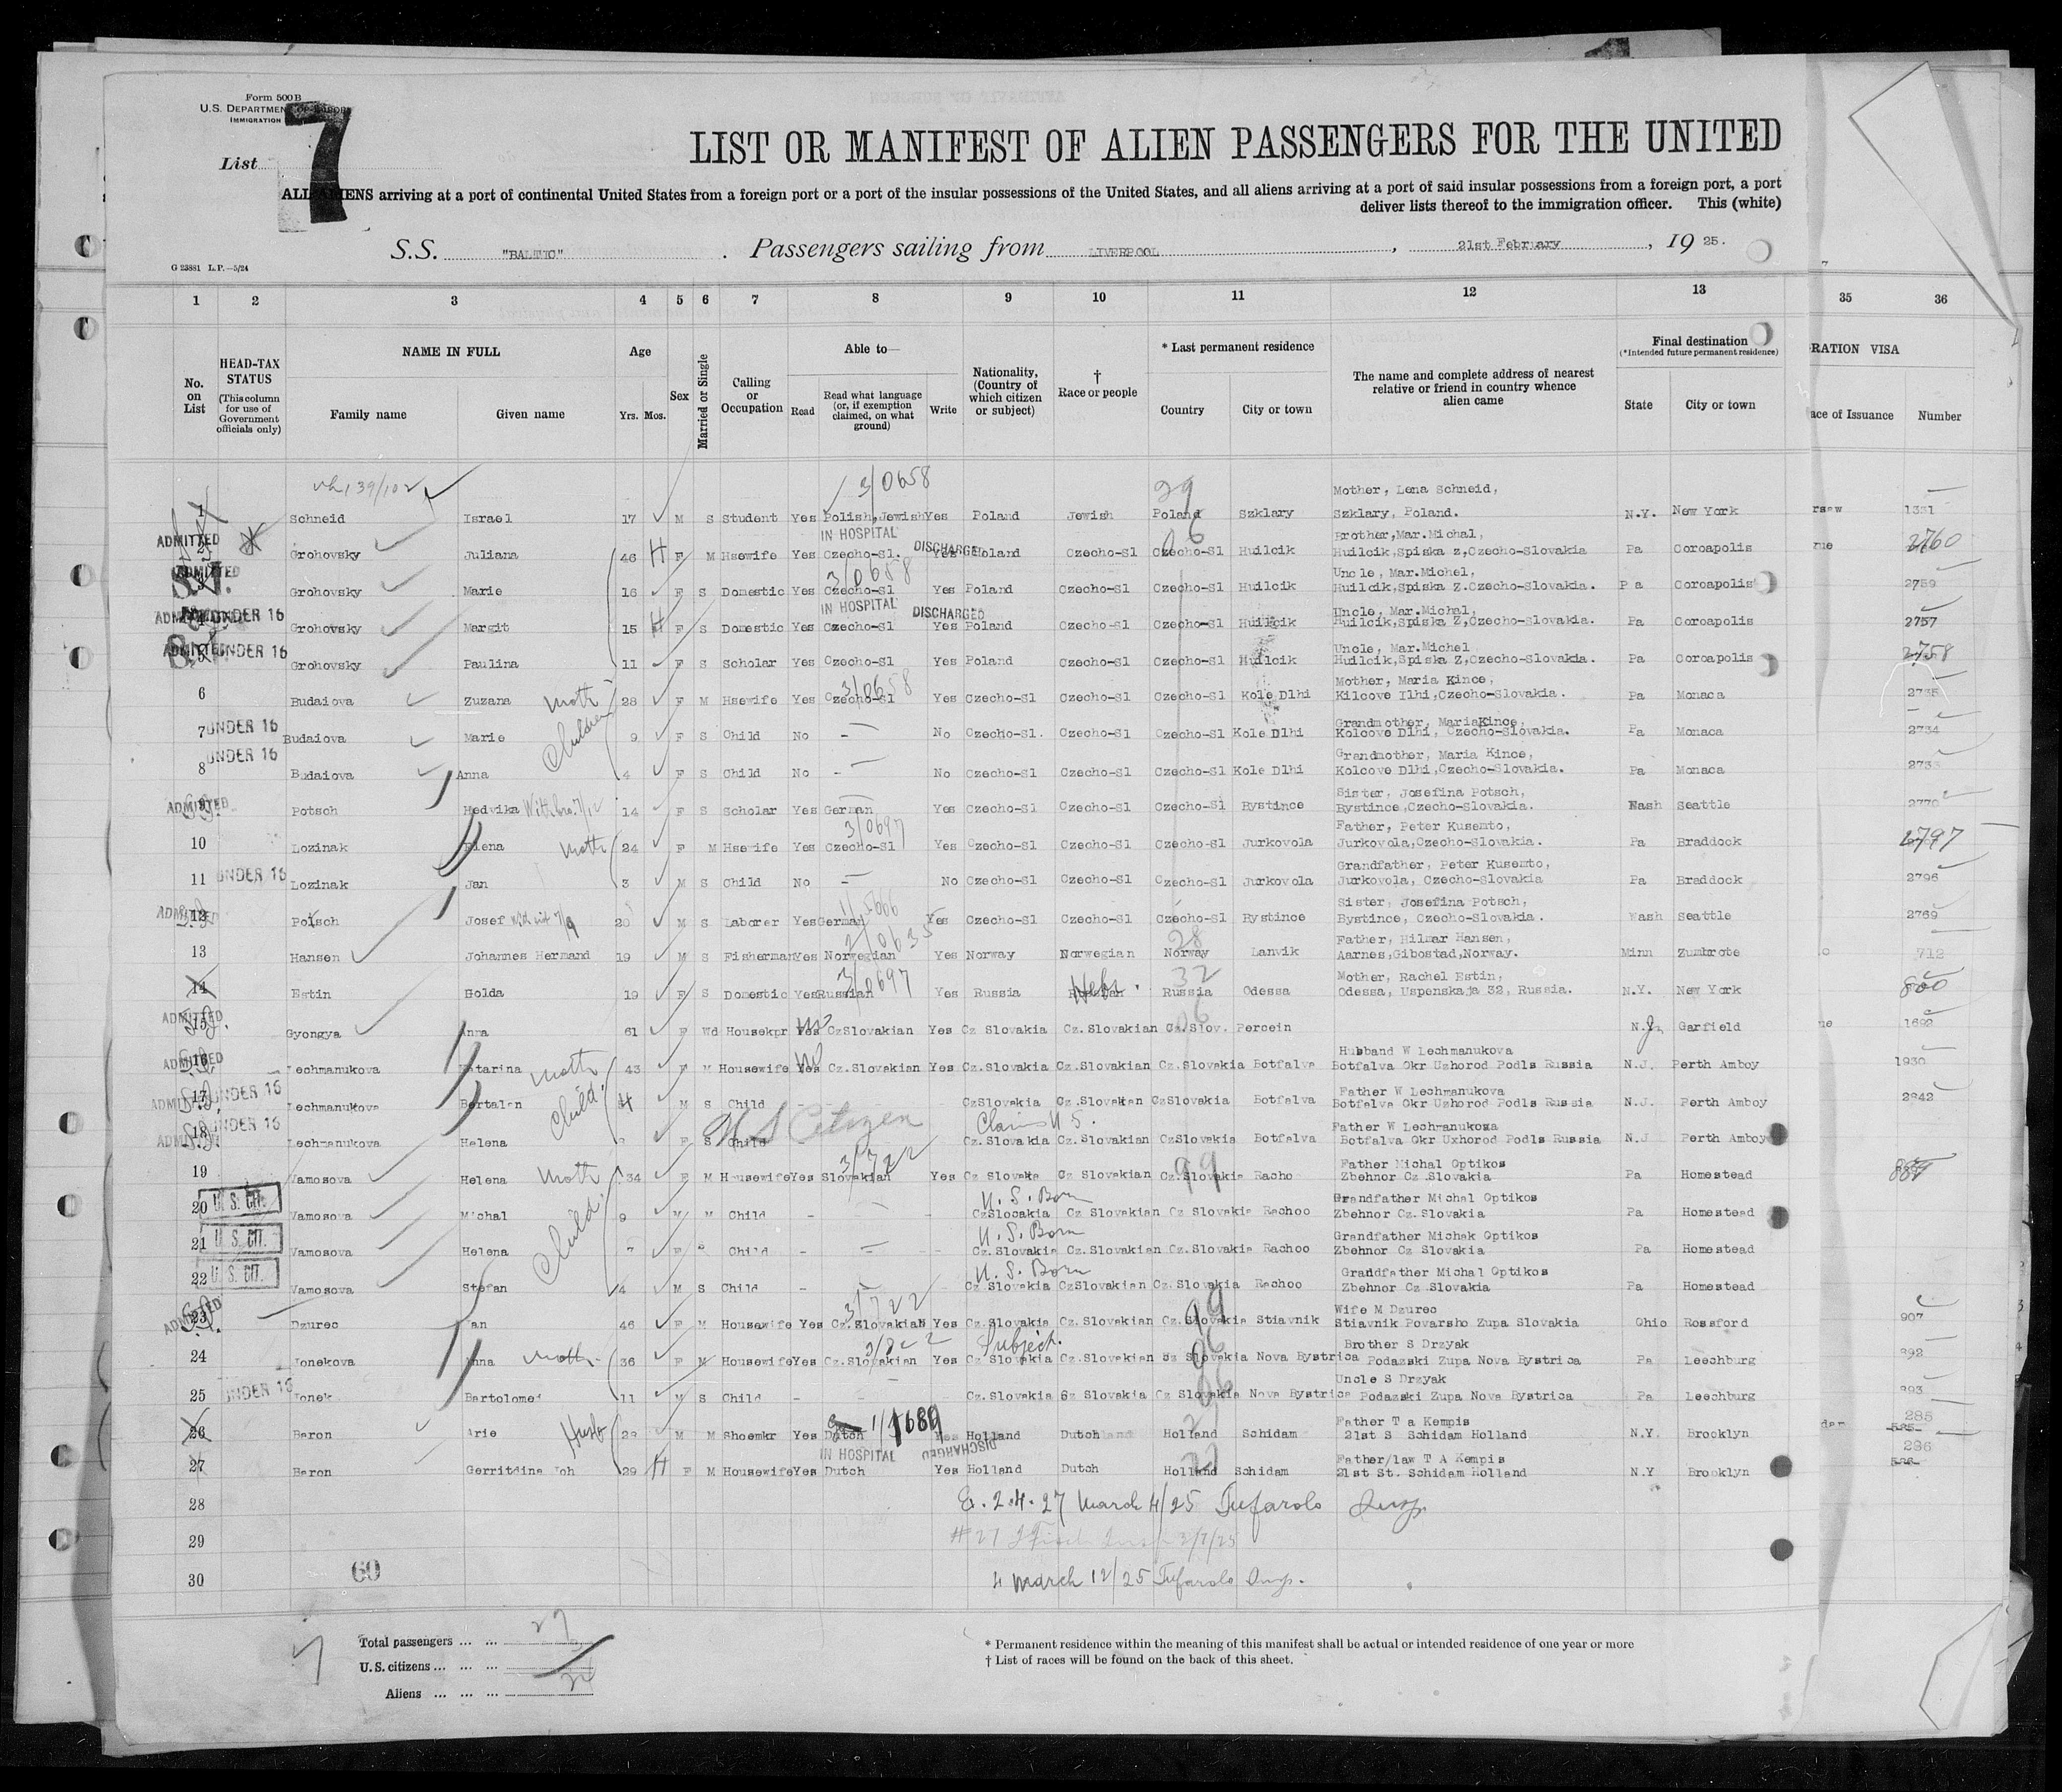 Form 500 B
U.S. DEPARTMENT OF LABOR
IMMIGRATION
List 7
LIST OR MANIFEST OF ALIEN PASSENGERS FOR THE UNITED
ALL ALIENS arriving at a port of continental United States from a foreign port or a port of the insular possessions of the United States, and all aliens arriving at a port of said insular possessions from a foreign port, a port
deliver lists thereof to the immigration officer. This (white)
S.S. "BALTIC" . Passengers sailing from LIVERPOOL , 21st February , 19 25.
G 23881 L.P.—5/24
1 2 3 4 5 6 7 8 9 10 11 12 13 35 36
No. on List
HEAD-TAX STATUS (This column for use of Government officials only)
NAME IN FULL
Family name Given name
Age
Yrs. Mos.
Sex
Married or Single
Calling or Occupation
Able to—
Read
Read what language (or, if exemption claimed, on what ground)
Write
Nationality, (Country of which citizen or subject)
† Race or people
* Last permanent residence
Country City or town
The name and complete address of nearest relative or friend in country whence alien came
Final destination
(*Intended future permanent residence)
State City or town
RATION VISA
ace of Issuance Number
3/0658 29
Mother, Lena Schneid,
1 Schneid Israel 17 M S Student Yes Polish, Jewish Yes Poland Jewish Poland Szklary Szklary, Poland. N.Y. New York rsaw 1331
IN HOSPITAL DISCHARGED
Brother, Mar. Michal,
ADMITTED 2 Grohovsky Juliana 46 H F M Hsewife Yes Czecho-Sl. Yes Poland Czecho-Sl Czecho-Sl Huilcik Huilcik, Spiska z, Czecho-Slovakia Pa Coroapolis rue 2760
3/0658
Uncle, Mar. Michel,
ADMITTED Grohovsky Marie 16 F S Domestic Yes Czecho-Sl Yes Poland Czecho-Sl Czecho-Sl Huilcik Huilcik, Spiska Z. Czecho-Slovakia. Pa Coroapolis 2759
IN HOSPITAL DISCHARGED
Uncle, Mar. Michal,
ADMITTED UNDER 16 Grohovsky Margit 15 H F S Domestic Yes Czecho-Sl Yes Poland Czecho-Sl Czecho-Sl Huilcik Huilcik, Spiska Z, Czecho-Slovakia. Pa Coroapolis 2757
Uncle, Mar. Michel
ADMITTED UNDER 16 Grohovsky Paulina 11 F S Scholar Yes Czecho-Sl Yes Poland Czecho-Sl Czecho-Sl Huilcik Huilcik, Spiska Z, Czecho-Slovakia. Pa Coroapolis 2758
Mother, Maria Kince,
6 Budaiova Zuzana Moth 28 F M Hsewife Yes Czecho-Sl Yes Czecho-Sl Czecho-Sl Czecho-Sl Kole Dlhi Kilcove Ilhi, Czecho-Slovakia. Pa Monaca 2735
Grandmother, Maria Kince,
7 UNDER 16 Budaiova Marie Children 9 F S Child No - No Czecho-Sl. Czecho-Sl Czecho-Sl Kole Dlhi Kolcove Dlhi, Czecho-Slovakia. Pa Monaca 2734
Grandmother, Maria Kince,
8 UNDER 16 Budaiova Anna 4 F S Child No - No Czecho-Sl Czecho-Sl Czecho-Sl Kole Dlhi Kolcove Dlhi, Czecho-Slovakia. Pa Monaca 2733
Sister, Josefina Potsch,
ADMITTED 9 Potsch Hedvika 14 F S Scholar Yes German Yes Czecho-Sl Czecho-Sl Czecho-Sl Bystince Bystince, Czecho-Slovakia. Wash Seattle 2770
3/0697
Father, Peter Kusemto,
10 Lozinak Elena Moth 24 F M Hsewife Yes Czecho-Sl Yes Czecho-Sl Czecho-Sl Czecho-Sl Jurkovola Jurkovola, Czecho-Slovakia. Pa Braddock 2797
Grandfather, Peter Kusemto,
11 UNDER 16 Lozinak Jan 3 M S Child No - No Czecho-Sl Czecho-Sl Czecho-Sl Jurkovola Jurkovola, Czecho-Slovakia Pa Braddock 2796
Sister, Josefina Potsch,
ADMITTED 12 Potsch Josef 20 M S Laborer Yes German Yes Czecho-Sl Czecho-Sl Czecho-Sl Bystince Bystince, Czecho-Slovakia. Wash Seattle 2769
28
Father, Hilmar Hansen,
13 Hansen Johannes Hermand 19 M S Fisherman Yes Norwegian Yes Norway Norwegian Norway Lanvik Aarnes, Gibostad, Norway. Minn Zumbrote 712
3/0697 32
Mother, Rachel Estin,
14 Estin Golda 19 F S Domestic Yes Russian Yes Russia Hebr. Russia Odessa Odessa, Uspenskaja 32, Russia. N.Y. New York 800
ADMITTED 15 Gyongya Anna 61 F Wd Housekpr Yes No CzSlovakian Yes Cz Slovakia Cz. Slovakian Cz. Slov. Percein N.J. Garfield ue 1692
Hubband W Lechmanukova
ADMITTED 16 Lechmanukova Katarina Moth 43 F M Housewife Yes No Cz. Slovakian Yes Cz. Slovakia Cz. Slovakian Cz. Slovakia Botfalva Botfalva Okr Uzhorod Podls Russia N.J. Perth Amboy 1930
Father W Lechmanukova
ADMITTED 17 UNDER 16 Lechmanukova Bertalan Child M S Child - CzSlovakia Cz. Slovakian CzSlovakia Botfalva Botfalva Okr Uzhorod Podls Russia N.J. Perth Amboy 2842
U S Citizen Claims U S.
Father W Lechmanukova
ADMITTED 18 UNDER 16 Lechmanukova Helena F S Child Cz. Slovakia Cz. Slovakian CzSlovakia Botfalva Botfalva Okr Uxhorod Podls Russia N.J Perth Amboy
3/722 99
Father Michal Optikos
19 Vamosova Helena Moth 34 F M Housewife Yes Slovakian Yes Cz Slovake Cz Slovakian Cz. Slovakia Racho Zbehnor Cz Slovakia Pa Homestead
U. S. Born
Grandfather Michal Optikos
20 U. S. CIT. Vamosova Michal Child 9 M M Child - - - CzSlocakia Cz Slovakian Cz Slovakia Rachoo Zbehnor Cz. Slovakia Pa Homestead
U. S. Born
Grandfather Michak Optikos
21 U. S. CIT. Vamosova Helena 7 F S Child - - Cz. Slovakia Cz. Slovakian Cz. Slovakia Rachoo Zbehnor Cz Slovakia Pa Homestead
U. S. Born
Granddfather Michal Optikos
22 U. S. CIT. Vamosova Stefan 4 M S Child - - Cz Slovakia CzSlovakian Cz. Slovakia Rachoo Zbehnor Cz Slovakia Pa Homestead
3/722 99
Wife M Dzurec
ADMITTED 23 Dzurec Jan 46 F M Housewife Yes Cz. Slovakian Yes Cz. Slovakia Cz. Slovakian Cz. Slovakia Stiavnik Stiavnik Povarsho Zupa Slovakia Ohio Rossford 907
Subject.
Brother S Drzyak
24 Jonekova Anna Moth. 36 F M Housewife Yes Cz. Slovakian Yes Cz Slovakia Cz. Slovakian Cz Slovakia Nova Bystrica Podazski Zupa Nova Bystrica Pa Leechburg 892
Uncle S Drzyak
25 UNDER 16 Jonek Bartolomej 11 M S Child - - Cz. Slovakia Cz Slovakian Cz Slovakia Nova Bystrica Podazski Zupa Nova Bystrica Pa Leechburg 893
Father T a Kempis 285
26 Baron Arie Husb 29 M M Shoemkr Yes Dutch Yes Holland Dutch Holland Schidam 21st S Schidam Holland N.Y. Brooklyn dam
IN HOSPITAL DISCHARGED
Father/law T A Kempis 286
27 Baron Gerritdina Joh 29 H F M Housewife Yes Dutch Yes Holland Dutch Holland Schidam 21st St. Schidam Holland N.Y Brooklyn
28 E. 2.4.27 March 4/25 Tufarolo Insp.
29
30 4 March 12/25 Tufarolo Insp.
60
Total passengers ... ... 27
U.S. citizens ... ... ...
Aliens ... ... ...
* Permanent residence within the meaning of this manifest shall be actual or intended residence of one year or more
† List of races will be found on the back of this sheet.